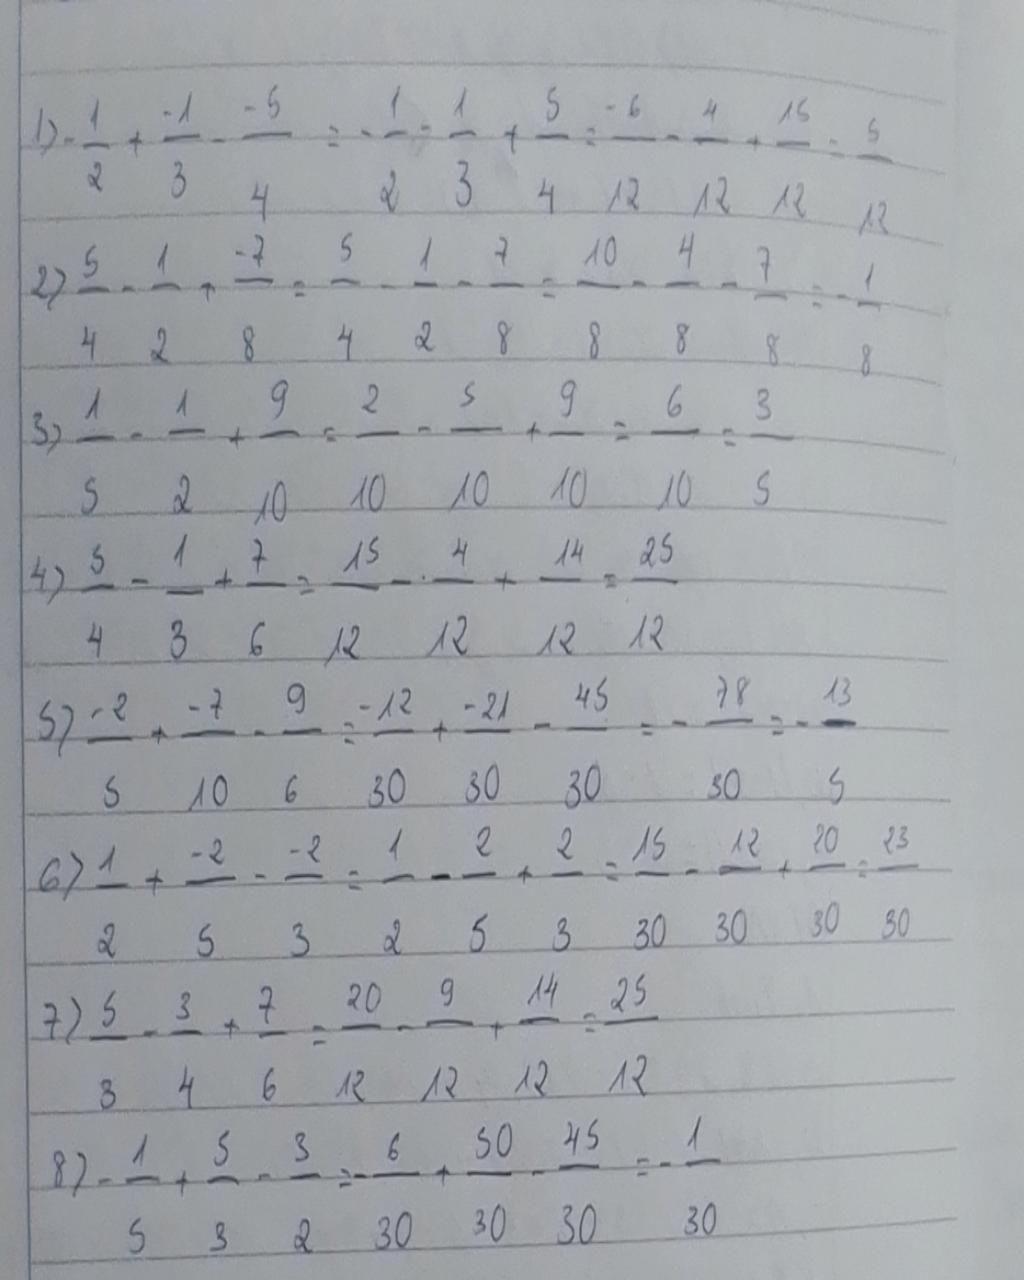 1) -1/2 + -1/3 - -5/4 = -1/2 - 1/3 + 5/4 = -6/12 - 4/12 + 15/12 = 5/12
2) 5/4 - 1/2 + -7/8 = 5/4 - 1/2 - 7/8 = 10/8 - 4/8 - 7/8 = -1/8
3) 1/5 - 1/2 + 9/10 = 2/10 - 5/10 + 9/10 = 6/10 = 3/5
4) 5/4 - 1/3 + 7/6 = 15/12 - 4/12 + 14/12 = 25/12
5) -2/5 + -7/10 - 9/6 = -12/30 + -21/30 - 45/30 = -78/30 = -13/5
6) 1/2 + -2/5 - -2/3 = 1/2 - 2/5 + 2/3 = 15/30 - 12/30 + 20/30 = 23/30
7) 5/3 - 3/4 + 7/6 = 20/12 - 9/12 + 14/12 = 25/12
8) -1/5 + 5/3 - 3/2 = -6/30 + 50/30 - 45/30 = -1/30